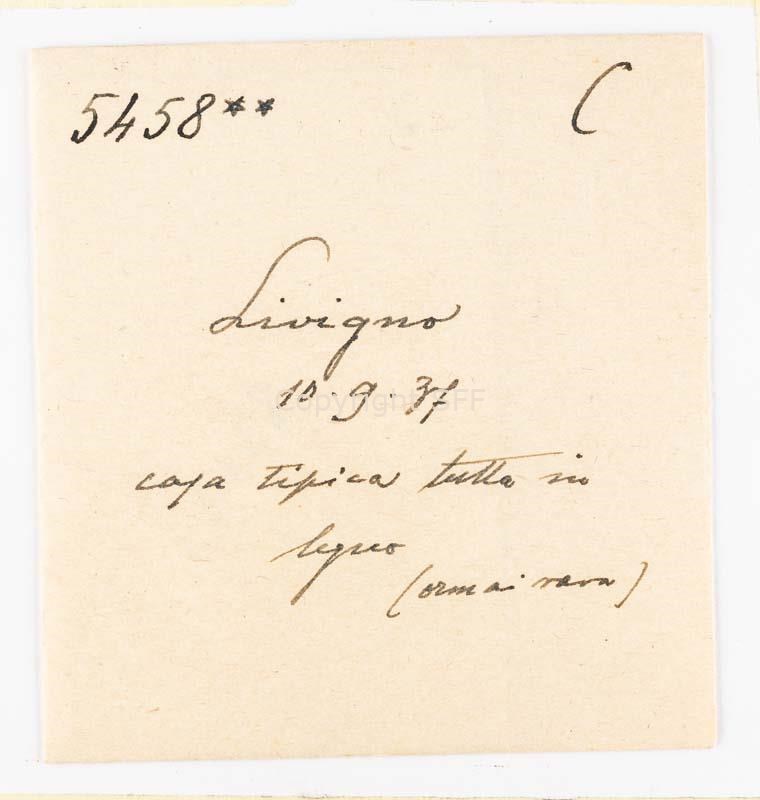 5458** C
Livigno
10.9.37
casa tipica tutta in
legno
(ormai rara)
Copyright SFF